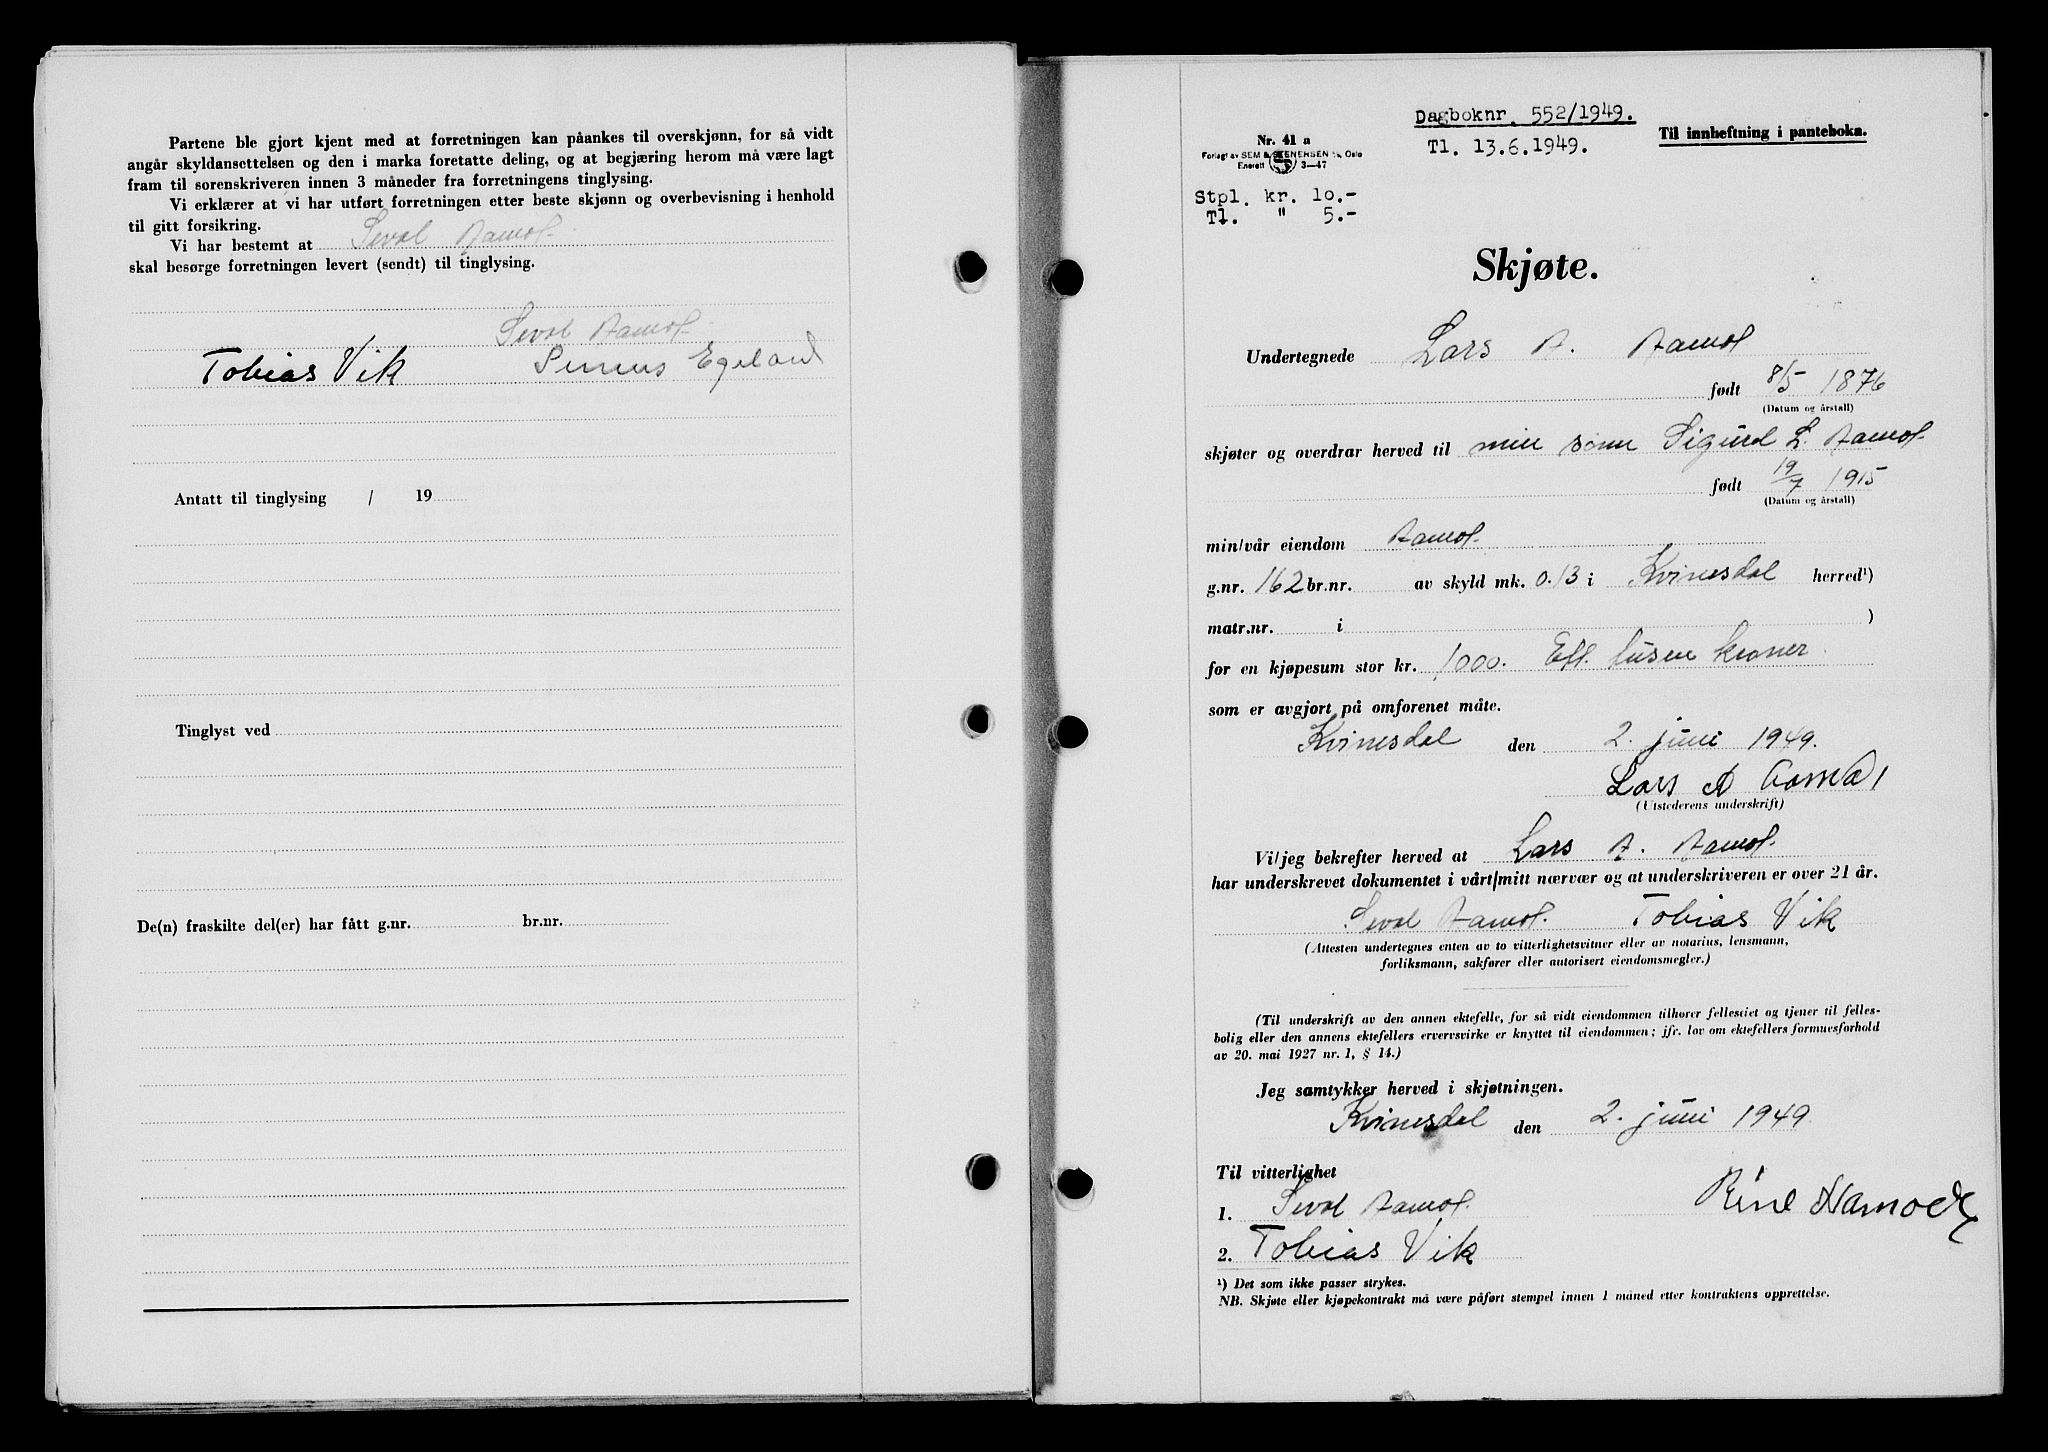 Partene ble gjort kjent med at forretningen kan påankes til overskjønn, for så vidt
angår skyldansettelsen og den i marka foretatte deling, og at begjæring herom må være lagt
fram til sorenskriveren innen 3 måneder fra forretningens tinglysing.
Vi erklærer at vi har utført forretningen etter beste skjønn og overbevisning i henhold
til gitt forsikring.
Vi har bestemt at Seval Aamot.
skal besørge forretningen levert (sendt) til tinglysing.
Seval Aamot.
Tobias Vik Egeland
Antatt til tinglysing / 19
Tinglyst ved
De(n) fraskilte del(er) har fått g.nr. br.nr.
Dagboknr. 552/1949.
Tl. 13.6.1949.
Til innheftning i panteboka.
Nr. 41 a
Forlagt av SEM & STENERSEN A/S, Oslo
Enerett 3—47
Stpl. kr. 10.-
Tl. " 5.-
Skjøte.
Undertegnede Lars A. Aamot
født 8/5 1876
(Datum og årstall)
skjøter og overdrar herved til min sønn Sigurd L. Aamot.
født 19/7 1915
(Datum og årstall)
min/vår eiendom Aamot.
g.nr. 162 br.nr. av skyld mk. 0.13 i Kvinesdal herred¹)
matr.nr. i )
for en kjøpesum stor kr. 1000. Ett tusen kroner.
som er avgjort på omforenet måte.
Kvinesdal den 2. juni 1949.
Lars A
(Utstederens underskrift)
Vi/jeg bekrefter herved at Lars A. Aamot.
har underskrevet dokumentet i vårt/mitt nærvær og at underskriveren er over 21 år.
Seval Aamot. Tobias Vik
(Attesten undertegnes enten av to vitterlighetsvitner eller av notarius, lensmann,
forliksmann, sakfører eller autorisert eiendomsmegler.)
(Til underskrift av den annen ektefelle, for så vidt eiendommen tilhører fellesiet og tjener til felles-
bolig eller den annens ektefellers ervervsvirke er knyttet til eiendommen; jfr. lov om ektefellers formuesforhold
av 20. mai 1927 nr. 1, § 14.)
Jeg samtykker herved i skjøtningen.
Kvinesdal den 2. juni 1949.
Til vitterlighet
1. Seval Aamot.
2. Tobias Vik
¹) Det som ikke passer strykes.
NB. Skjøte eller kjøpekontrakt må være påført stempel innen 1 måned etter kontraktens opprettelse.